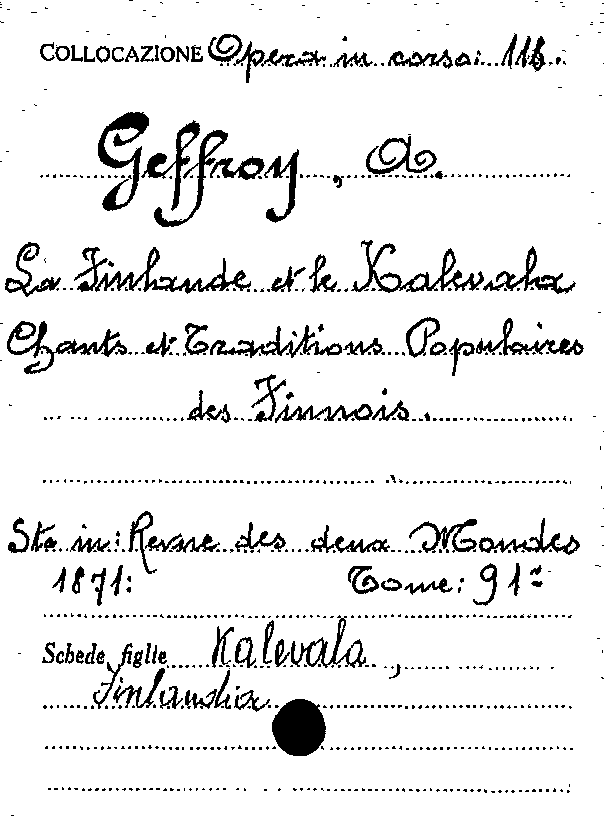 COLLOCAZIONE Opera in corso: 116.
Geffroy, A.
La Finlande et le Kalevala
Chants et Traditions Populaires
des Finnois.
Sta in: Revue des deux Mondes
1871: Tome: 91~
Schede figlie Kalevala,
Finlandia